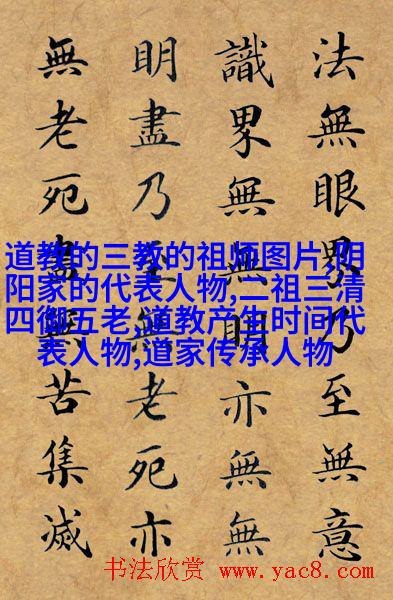 法無眼界乃至無意
識界無無明亦無無
明盡乃至無老死亦
無老死盡無苦集滅
道教的三教的祖师图片,阴
阳家的代表人物,二祖三清
四御五老,道教产生时间代
表人物,道家传承人物
书法欣赏 www.yac8.com